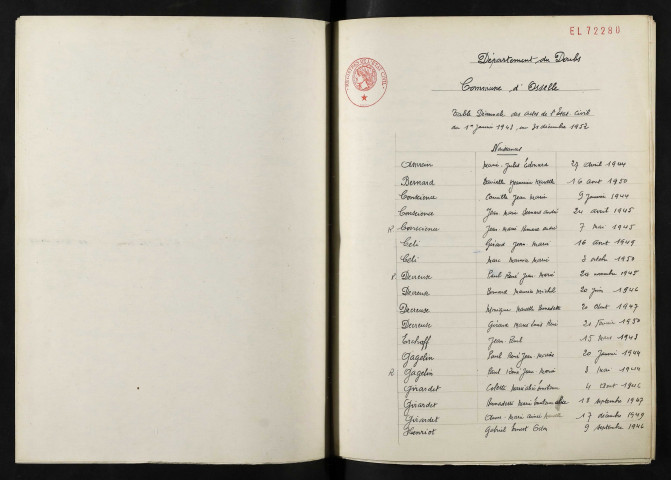 EL 72280
Département du Doubs
Commune d'Osselle
Table Décennale des actes de l'État Civil
du 1er janvier 1943 au 31 décembre 1952
Naissances
Marie Jules Édouard 29 avril 1944
Bernard Danielle Marcelle 16 août 1950
Conscience Camille Jean Marie 9 janvier 1944
Conscience Jean Marie Bernard André 24 avril 1945
R Conscience Jean Marie Bernard André 7 mai 1945
Coli Gérard Jean Marie 16 août 1949
Coli Marc Maurice Marie 3 octob 1950
Decreuse Paul René Jean Marie 24 novembre 1945
Decreuse Bernard Maurice Michel 20 juin 1946
Decreuse Monique Marcelle Bernadette 20 août 1947
Decreuse Gérard Marie Louis René 21 février 1950
Erchoff Jean-Paul 15 mars 1943
Gagelin Paul René Jean Marie 20 janvier 1944
R Gagelin Paul René Jean Marie 3 mai 1944
Girardet Colette Marie 4 août 1946
Girardet Bernadette Marie 18 septembre 1947
Girardet Marie Aimée 17 décembre 1949
Henriot Gabriel Ernest 9 septembre 1946